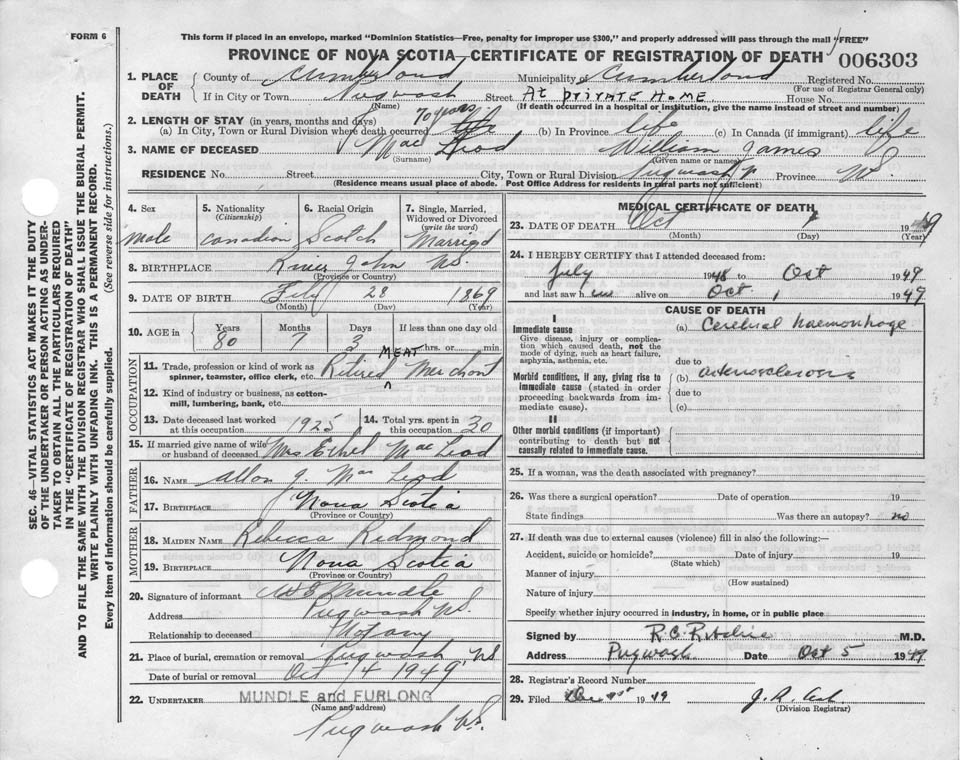 FORM 6
This form if placed in an envelope, marked "Dominion Statistics—Free, penalty for improper use $300," and properly addressed will pass through the mail "FREE"
PROVINCE OF NOVA SCOTIA—CERTIFICATE OF REGISTRATION OF DEATH
006303
1. PLACE OF DEATH
County of Cumberland Municipality of Cumberland Registered No.
(For use of Registrar General only)
If in City or Town Pugwash Street At private Home House No.
(Name) (If death occurred in a hospital or institution, give the name instead of street and number)
2. LENGTH OF STAY (in years, months and days) 70 years
(a) In City, Town or Rural Division where death occurred (b) In Province life (c) In Canada (if immigrant) life
3. NAME OF DECEASED Mac Leod William James
(Surname) (Given name or names)
RESIDENCE No. Street City, Town or Rural Division Pugwash Province N.S.
(Residence means usual place of abode. Post Office Address for residents in rural parts not sufficient)
SEC. 46—VITAL STATISTICS ACT MAKES IT THE DUTY
OF THE UNDERTAKER OR PERSON ACTING AS UNDER-
TAKER TO OBTAIN ALL THE PARTICULARS REQUIRED
IN THE "CERTIFICATE OF REGISTRATION OF DEATH"
AND TO FILE THE SAME WITH THE DIVISION REGISTRAR WHO SHALL ISSUE THE BURIAL PERMIT.
WRITE PLAINLY WITH UNFADING INK. THIS IS A PERMANENT RECORD.
Every item of information should be carefully supplied. (See reverse side for instructions.)
4. Sex male
5. Nationality (Citizenship) Canadian
6. Racial Origin Scotch
7. Single, Married, Widowed or Divorced (write the word) Married
8. BIRTHPLACE River John N.S.
(Province or Country)
9. DATE OF BIRTH 28 1869
(Month) (Day) (Year)
10. AGE in Years 80 Months 7 Days 3 If less than one day old hrs. or min.
OCCUPATION
11. Trade, profession or kind of work as spinner, teamster, office clerk, etc. Retired MEAT Merchant
12. Kind of industry or business, as cotton-mill, lumbering, bank, etc.
13. Date deceased last worked at this occupation 1925
14. Total yrs. spent in this occupation 30
15. If married give name of wife or husband of deceased Mrs Ethel Mac Leod
FATHER
16. NAME Allan J. Mac Leod
17. BIRTHPLACE Nova Scotia
(Province or Country)
MOTHER
18. MAIDEN NAME Rebecca Redmond
19. BIRTHPLACE Nova Scotia
(Province or Country)
20. Signature of informant Mundle
Address Pugwash N.S.
Relationship to deceased Not any
21. Place of burial, cremation or removal Pugwash N.S.
Date of burial or removal Oct 4 1949
22. UNDERTAKER MUNDLE and FURLONG
(Name and address)
Pugwash N.S.
MEDICAL CERTIFICATE OF DEATH
23. DATE OF DEATH Oct 1 1949
(Month) (Day) (Year)
24. I HEREBY CERTIFY that I attended deceased from:
July 1948 to Oct 1949
and last saw him alive on Oct 1, 1949
CAUSE OF DEATH
I
Immediate cause (a) Cerebral haemorrhage
Give disease, injury or complica-
tion which caused death, not the
mode of dying, such as heart failure,
asphyxia, asthenia, etc. due to
Morbid conditions, if any, giving rise to (b) arteriosclerosis
immediate cause (stated in order
proceeding backwards from im- due to
mediate cause). (c)
II
Other morbid conditions (if important)
contributing to death but not
causally related to immediate cause.
25. If a woman, was the death associated with pregnancy?
26. Was there a surgical operation? Date of operation 19
State findings Was there an autopsy? no
27. If death was due to external causes (violence) fill in also the following:—
Accident, suicide or homicide? Date of injury 19
(State which)
Manner of injury
(How sustained)
Nature of injury
Specify whether injury occurred in industry, in home, or in public place
Signed by R.C. Ritchie M.D.
Address Pugwash Date Oct 5 1949
28. Registrar's Record Number
29. Filed 1949
(Division Registrar)